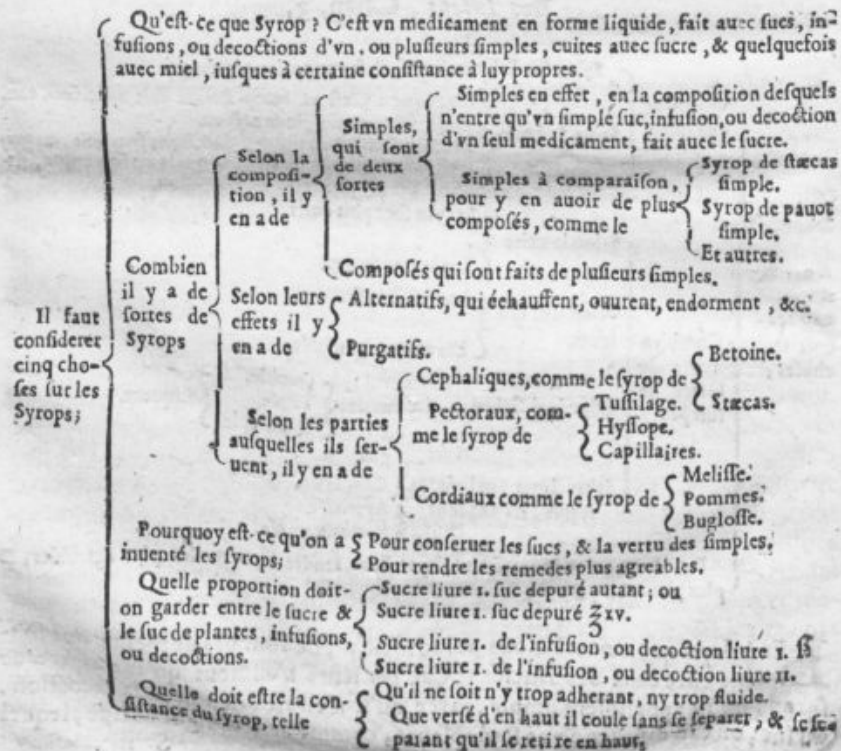 Qu'eſt-ce que Syrop ? C'eſt vn medicament en forme liquide, fait auec ſucs, in-
fuſions, ou decoctions d'vn. ou pluſieurs ſimples, cuites auec ſucre, & quelquefois
auec miel, iuſques à certaine conſiſtance à luy propres.
Il faut
conſiderer
cinq cho-
ſes ſur les
Syrops;
Combien
il y a de
ſortes de
Syrops
Selon la
compoſi-
tion, il y
en a de
Simples,
qui ſont
de deux
ſortes
Simples en effet, en la compoſition deſquels
n'entre qu'vn ſimple ſuc, infuſion, ou decoction
d'vn ſeul medicament, fait auec le ſucre.
Simples à comparaiſon,
pour y en auoir de plus
compoſés, comme le
Syrop de ſtæcas
ſimple.
Syrop de pauot
ſimple.
Et autres.
Compoſés qui ſont faits de pluſieurs ſimples.
Selon leurs
effets il y
en a de
Alternatifs, qui échauffent, ouurent, endorment, &c.
Purgatifs.
Selon les parties
auſquelles ils ſer-
uent, il y en a de
Cephaliques, comme le ſyrop de
Betoine.
Stæcas.
Pectoraux, com-
me le ſyrop de
Tuſſilage.
Hyſſope.
Capillaires.
Cordiaux comme le ſyrop de
Meliſſe.
Pommes.
Bugloſſe.
Pourquoy eſt-ce qu'on a
inuenté les ſyrops;
Pour conſeruer les ſucs, & la vertu des ſimples.
Pour rendre les remedes plus agreables.
Quelle proportion doit-
on garder entre le ſucre &
le ſuc de plantes, infuſions,
ou decoctions.
Sucre liure 1. ſuc depuré autant; ou
Sucre liure 1. ſuc depuré ℥xv.
Sucre liure 1. de l'infuſion, ou decoction liure 1. ß
Sucre liure 1. de l'infuſion, ou decoction liure 11.
Quelle doit eſtre la con-
ſiſtance du ſyrop, telle
Qu'il ne ſoit n'y trop adherant, ny trop fluide.
Que verſé d'en haut il coule ſans ſe ſeparer, & ſe ſe-
parant qu'il ſe retire en haut,